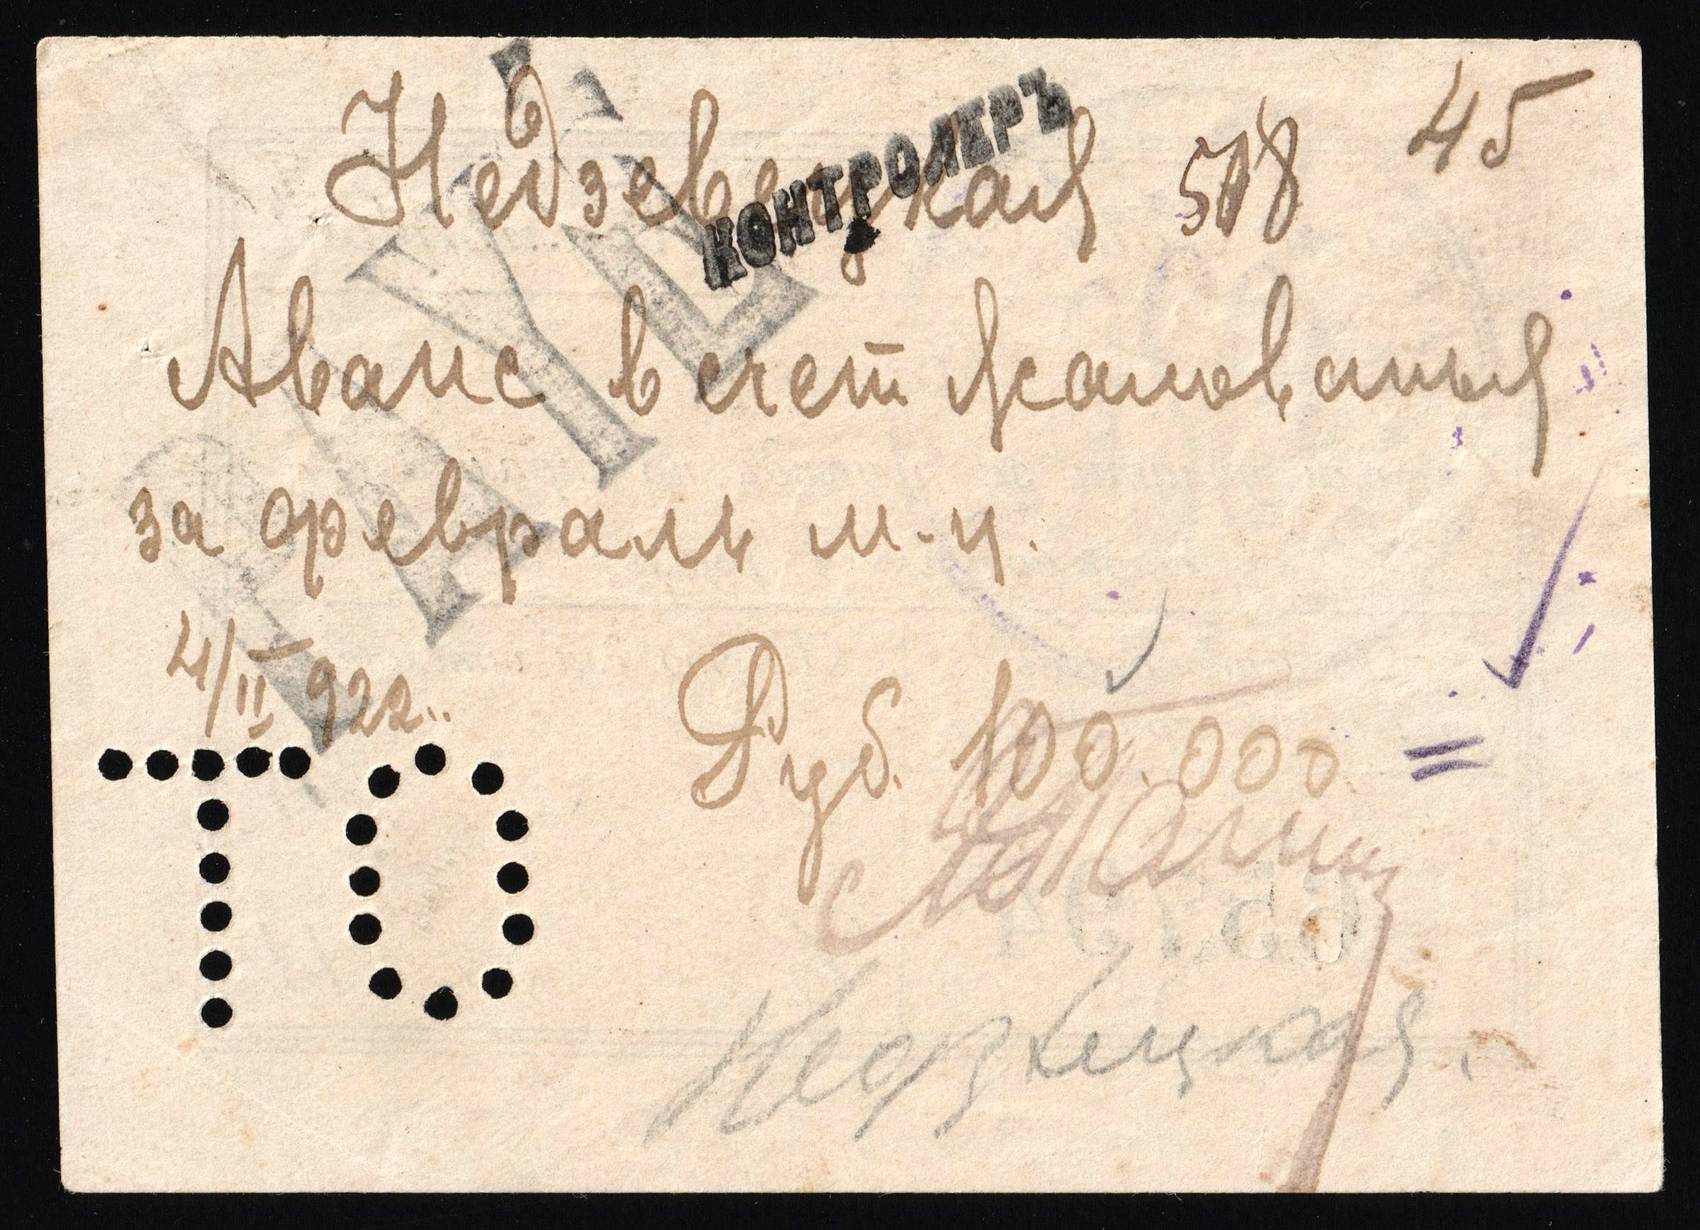 Недзвецкая 508 45
КОНТРОЛЕРЪ
PAYÉ
Аванс в счет жалованья
за февраль м-ц.
4/II 922..
Руб. 100.000 =
ТО
Недзвецкая.